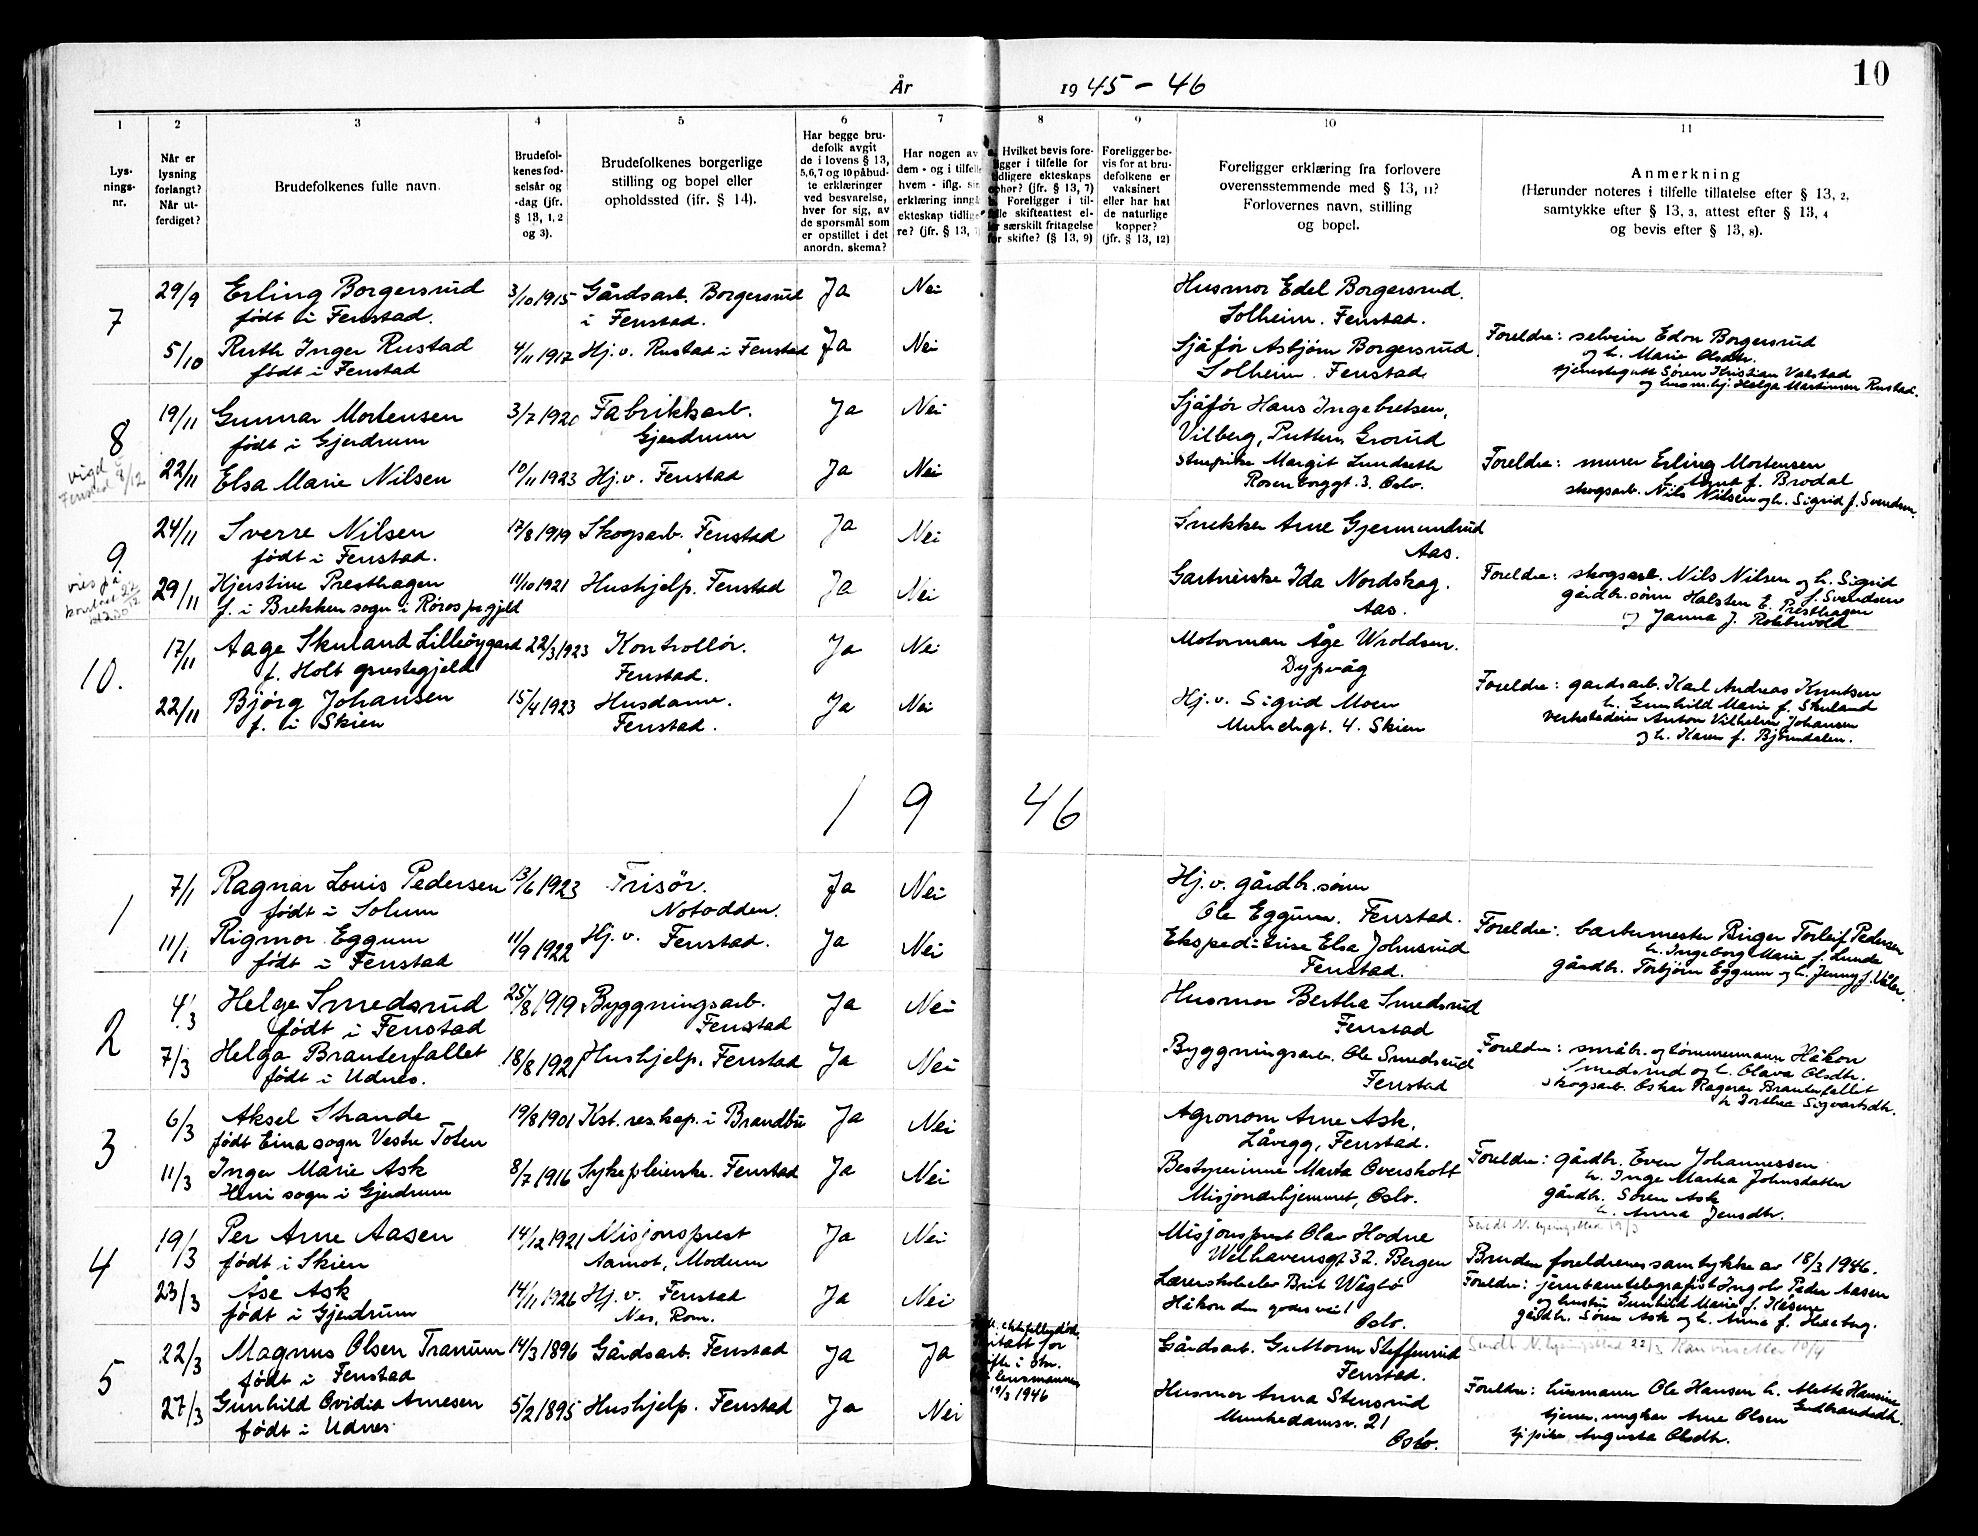 10
År 1945 – 46
1 2 3 4 5 6 7 8 9 10 11
Lysnings-nr.
Når er lysning forlangt? Når utferdiget?
Brudefolkenes fulle navn.
Brudefolkenes fødselsår og -dag (jfr. § 13, 1, 2 og 3).
Brudefolkenes borgerlige stilling og bopel eller opholdssted (jfr. § 14).
Har begge brudefolk avgit de i lovens § 13, 5, 6, 7 og 10 påbudte erklæringer ved besvarelse, hver for sig, av de spørsmål som er opstillet i det anordn. skema?
Har nogen av dem - og i tilfelle hvem - iflg. sin erklæring inngått ekteskap tidligere? (jfr. § 13,
Hvilket bevis foreligger i tilfelle for tidligere ekteskaps ophør? (jfr. § 13, 7) Foreligger i tilfelle skifteattest eller særskilt fritagelse for skifte? (§ 13, 9)
Foreligger bevis for at brudefolkene er vaksinert eller har hat de naturlige kopper? (jfr. § 13, 12)
Foreligger erklæring fra forlovere overensstemmende med § 13, 11? Forlovernes navn, stilling og bopel.
Anmerkning
(Herunder noteres i tilfelle tillatelse efter § 13, 2, samtykke efter § 13, 3, attest efter § 13, 4 og bevis efter § 13, 8).
7
29/9 Erling Borgersrud 3/10 1915 Gårdsarb. Borgersrud Ja Nei Husmor Edel Borgersrud.
født i Fenstad. i Fenstad. Solheim. Fenstad.
5/10 Ruth Inger Rustad 4/11 1917 Hj.v. Rustad i Fenstad Ja Nei Sjåfør Asbjørn Borgersrud.
født i Fenstad Solheim. Fenstad.
Foreldre: selveier Edon Borgersrud
og h. Marie Olsdtr.
tjenestegutt Søren Kristian Valstad
og husm.hj. Helga Martinsen Rustad.
8
viet i Fenstad 8/12
19/11 Gunnar Mortensen 3/7 1920 Fabrikksarb. Ja Nei Sjåfør Hans Ingebretsen,
født i Gjerdrum Gjerdrum Vilberg, Putten, Grorud
22/11 Elsa Marie Nilsen 10/11 1923 Hj.v. Fenstad Ja Nei Margit Lundseth
Rosenborggt. 3. Oslo.
Foreldre: murer Erling Mortensen
h. Anna f. Brodal
skogsarb. Nils Nilsen og h. Sigrid f. Svendsen.
9.
vies på kontoret 22/12
24/11 Sverre Nilsen 17/8 1919 Skogsarb. Fenstad Ja Nei Snekker Arne Gjermundrud
født i Fenstad. Aas.
29/11 Kjerstine Presthagen 11/10 1921 Hushjelp. Fenstad Ja Nei Gartnerske Ida Nordskog.
f. i Brekken sogn i Røros pr.gjeld Aas.
Foreldre: skogsarb. Nils Nilsen og h. Sigrid
f. Svendsen
gårdbr.sønn Halsten E. Presthagen
og Janna J.
10.
17/11 Aage Skuland Lilleøygard 22/3 1923 Kontrollør. Ja Nei Motorman Åge Wroldsen.
f. Holt prestegjeld Fenstad. Dypvåg
22/11 Bjørg Johansen 15/4 1923 Husdame. Ja Nei Hj.v. Sigrid Moen
f. i Skien Fenstad. 4. Skien
Foreldre: gardsarb. Karl Andreas Knutsen
h. Gunhild Marie f. Skuland
verkstedeier Anton Vilhelm Johansen
og h. Karen f. Bjørndalen.
1946
1
7/1 Ragnar Louis Pedersen 13/6 1923 Frisør. Ja Nei Hj.v. gårdbr.sønn
født i Solum Notodden. Ole Eggum. Fenstad.
11/1 Rigmor Eggum 11/9 1922 Hj.v. Fenstad. Ja Nei Ekspeditrise Elsa Johnsrud
født i Fenstad Fenstad.
Foreldre: barbermester Birger Torleif Pedersen
h. Ingeborg Marie f. Lunde
gårdbr. Torbjørn Eggum og h. Jenny f. Våler.
2
4/3 Helge Smedsrud 25/8 1919 Byggningsarb. Ja Nei Husmor Bertha Smedsrud
født i Fenstad Fenstad Fenstad
7/3 Helga Branterfallet 18/8 1921 Hushjelp. Fenstad Ja Nei Byggningsarb. Ole Smedsrud
født i Udnes. Fenstad
Foreldre: småbr. og tømmermann Håkon
Smedsrud og h. Olava Olsdtr.
skogsarb. Oskar Ragnar Branterfallet
h. Dorthea Sigvartsdtr.
3
6/3 Aksel Strande 19/8 1901 Kst. res.kap. i Brandbu Ja Nei Agronom Arne Ask.
født Eina sogn Vestre Toten Låvegg, Fenstad.
11/3 Inger Marie Ask 8/7 1916 Sykepleierske. Fenstad Ja Nei Bestyrerinne Marta Oversholt
Heni sogn i Gjerdrum Misjonærhjemmet, Oslo.
Foreldre: gårdbr. Even Johannessen
h. Inge Martea Johnsdatter
gårdbr. Søren Ask
h. Anna Jensdtr.
Sendt N. lysningsblad 19/3
4
19/3 Per Arne Aasen 14/12 1921 Misjonsprest Ja Nei Misjonsprest Olav Hodne
født i Skien Aamot, Modum Welhavensgt 32. Bergen
23/3 Åse Ask 14/11 1926 Hj.v. Fenstad Ja Nei Lærerskoleelev Brit Vågbø
født i Gjerdrum Nes, Rom. Håkon den godes vei 1
Oslo.
Bruden foreldrenes samtykke av 18/3 1946.
Foreldre: jernbanetelegrafist Ingolv Peder Aasen
og hustru Gunhild Marie f. Håsene
gårdbr. Søren Ask og h. Anna f. Heseberg.
Sendt N. lysningsblad 22/3
5
22/3 Magnus Olsen Tranum 14/3 1896 Gårdsarb. Fenstad Ja Ja Gårdsarb. Guttorm Steffensrud
født i Fenstad Fenstad.
27/3 Gunhild Ovidia Arnesen 5/2 1895 Hushjelp. Fenstad Ja Nei Husmor Anna Stensrud
født i Udnes Munkedamsv. 21
Oslo.
19/3 1946
Foreldre: husmann Ole Hansen h. Alette Hansine
Gudbrandsdtr.
tjener, ungkar Arne Olsen
tj.pike Augusta Olsdtr.